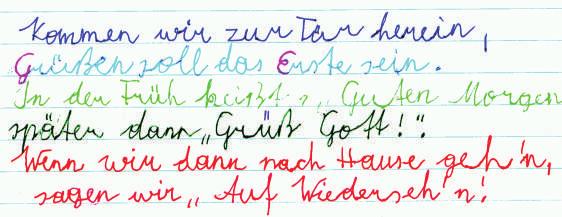 Kommen wir zur Tür herein,
Grüßen soll das Erste sein.
In der Früh heißt's „Guten Morgen
später dann „Grüß Gott!".
Wenn wir dann nach Hause geh'n,
sagen wir „Auf Wiederseh'n!